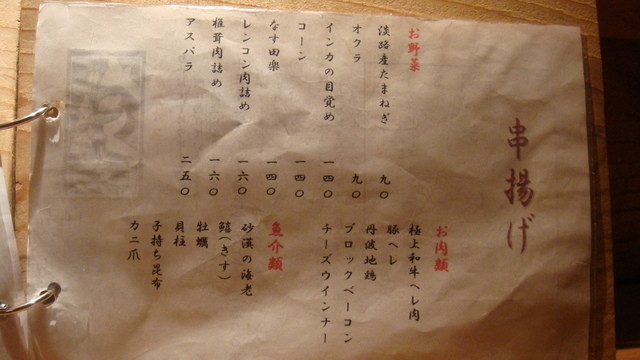 串揚げ
お野菜
淡路産たまねぎ 九〇
オクラ 九〇
インカの目覚め 一四〇
コーン 一四〇
なす田楽 一四〇
レンコン肉詰め 一六〇
椎茸肉詰め 一六〇
アスパラ 二五〇
お肉類
極上和牛ヘレ肉
豚ヘレ
丹波地鶏
ブロックベーコン
チーズウインナー
魚介類
砂漠の海老
鱚(きす)
牡蠣
貝柱
子持ち昆布
カニ爪